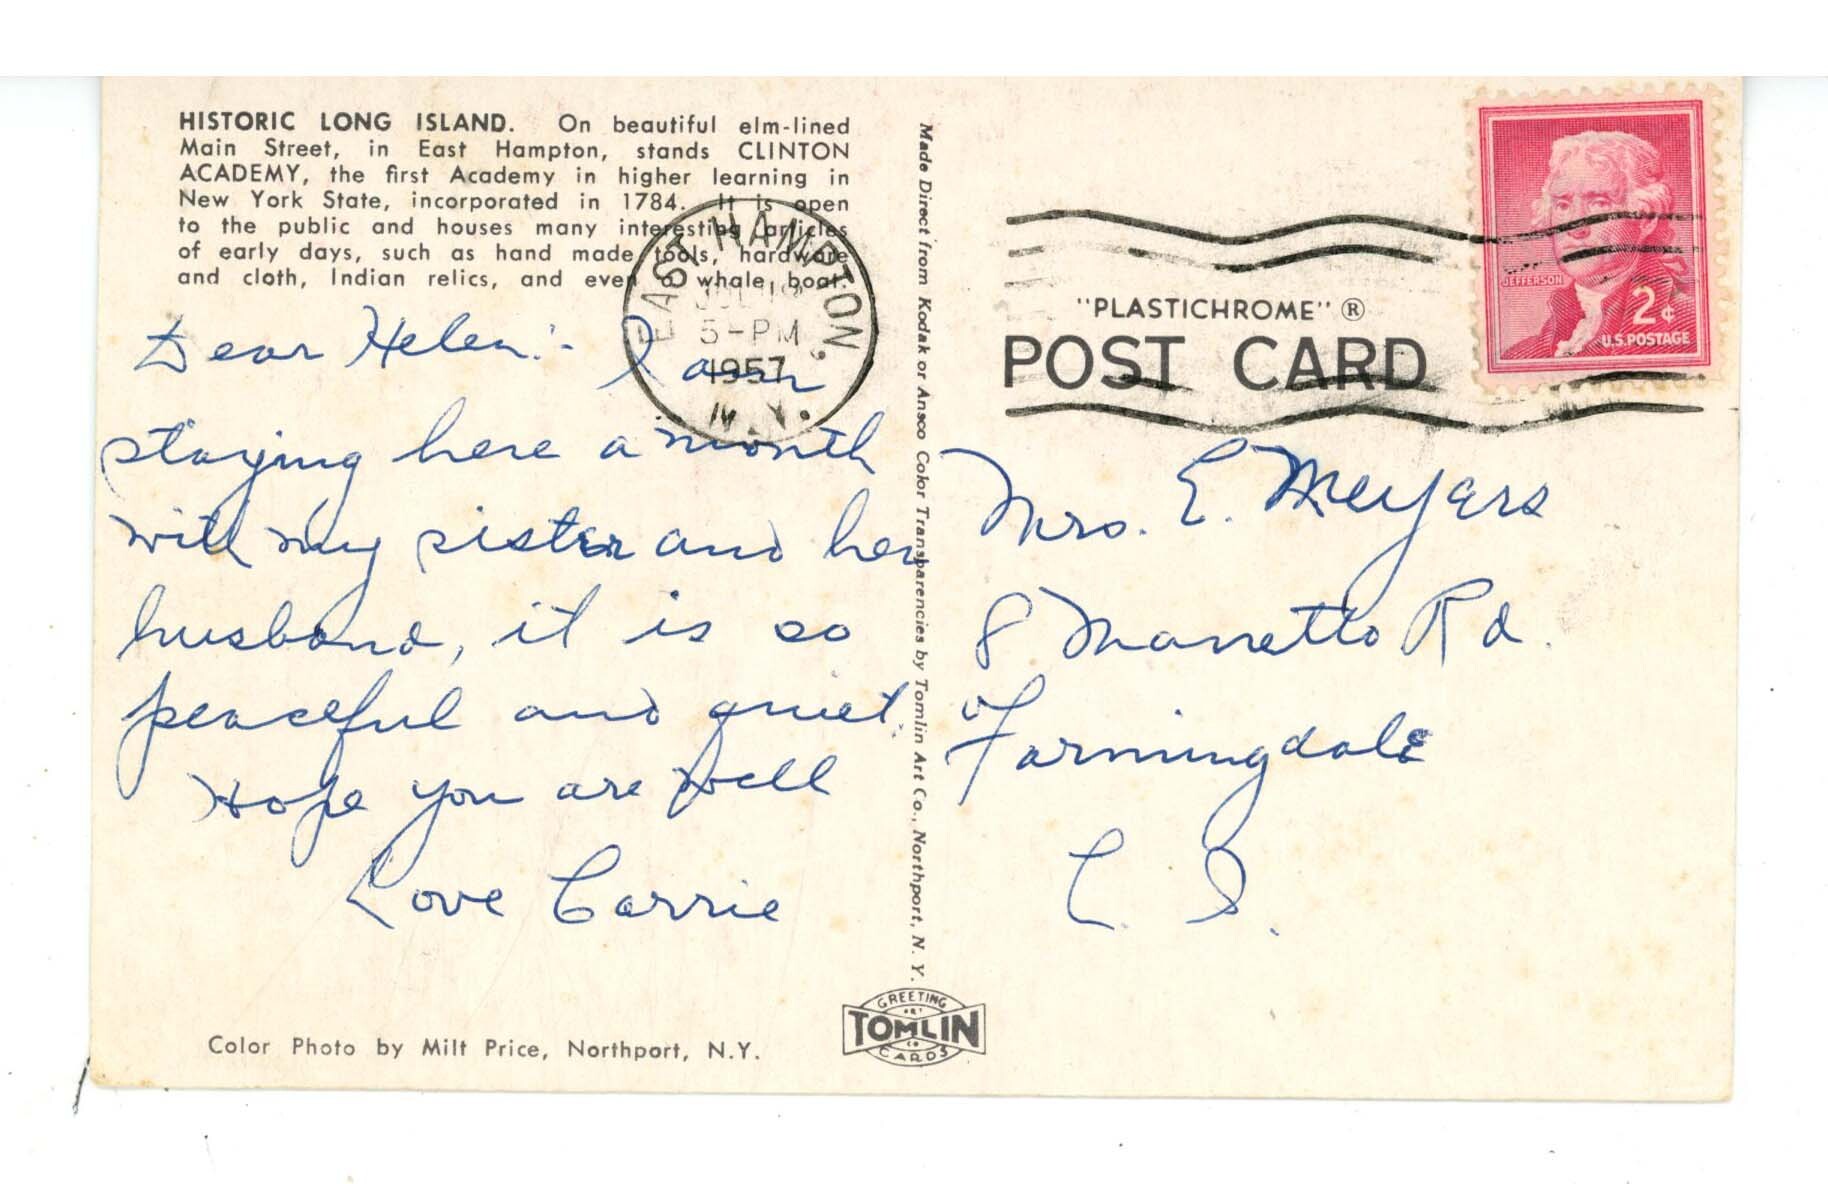 HISTORIC LONG ISLAND. On beautiful elm-lined
Main Street, in East Hampton, stands CLINTON
ACADEMY, the first Academy in higher learning in
New York State, incorporated in 1784. It is open
to the public and houses many interesting articles
of early days, such as hand made tools, hardware
and cloth, Indian relics, and even a whale boat.
EAST HAMPTON,
JUL
5-PM
1957
N.Y.
Dear Helen:- I am
staying here a month
with my sister and her
husband, it is so
peaceful and quiet.
Hope you are well
Love Carrie
Color Photo by Milt Price, Northport, N.Y.
Made Direct from Kodak or Ansco Color Transparencies by Tomlin Art Co., Northport, N. Y.
GREETING
ART
TOMLIN
CO
CARDS
"PLASTICHROME" ®
POST CARD
JEFFERSON
2¢
U.S. POSTAGE
Mrs. E. Meyers
8 Manetto Rd.
Farmingdale
L. I.